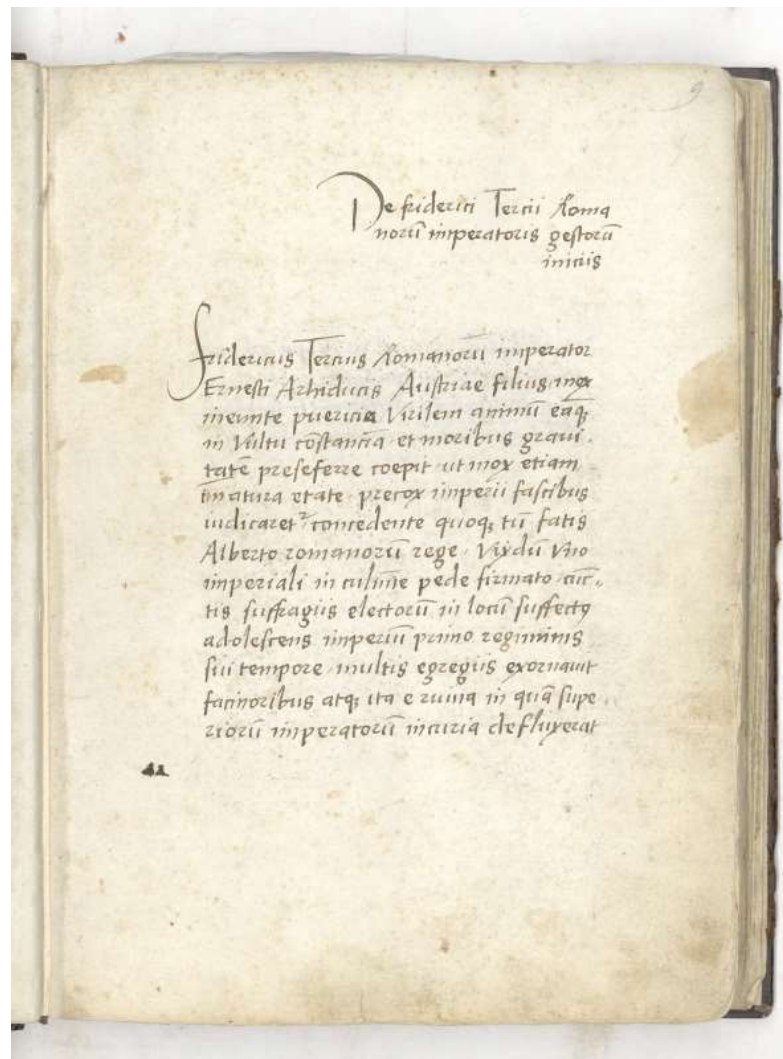 9
De friderici Tercii Roma
norū imperatoris gestorū
iniciis
Fridericus Tercius Romanorū imperator
Ernesti Arhiducis Austriae filius mox
ineunte puericia Virilem animū eaq;
in Vultu cōstanciā et moribus gravi.
tatē preseferre coepit ut mox etiam
inatura etate precox imperii fascibus
iudicaret² concedente quoq; tū fatis
Alberto romanorū rege Vixdū Vno
imperiali in culmīe pede firmato cūc„
tis suffragiis electorū in locū suffectꝯ
adolescens imperiū primo regiminis
sui tempore multis egregiis exornauit
facinoribus atq; ita e ruina in quā supe
riorū imperatorū incuria defluxerat